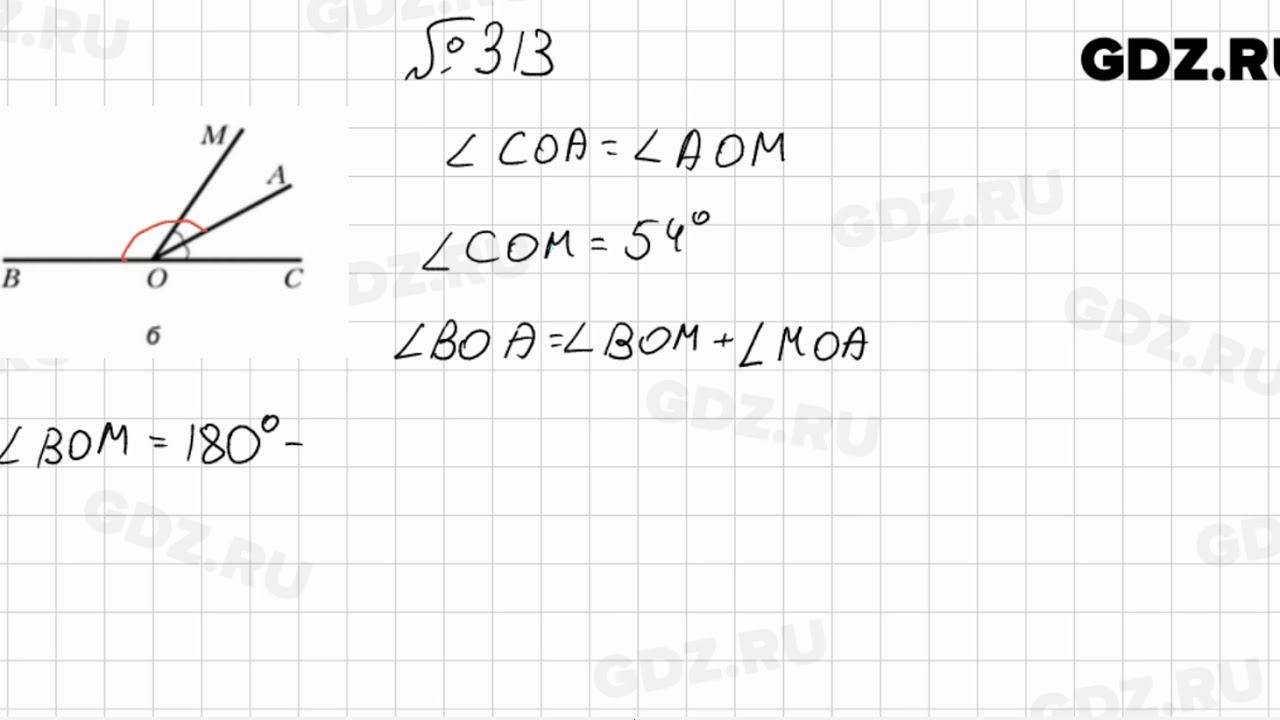 № 313
GDZ.RU
∠ COA = ∠ AOM
∠ COM = 54°
∠BOA = ∠BOM + ∠MOA
M
A
B O C
б
∠ BOM = 180° -
GDZ.RU
GDZ.RU
GDZ.RU
GDZ.RU
GDZ.RU
GDZ.RU
GDZ.RU
GDZ.RU
GDZ.RU